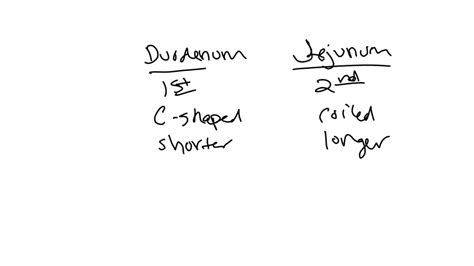 Duodenum Jejunum
1st 2nd
C-shaped coiled
shorter longer